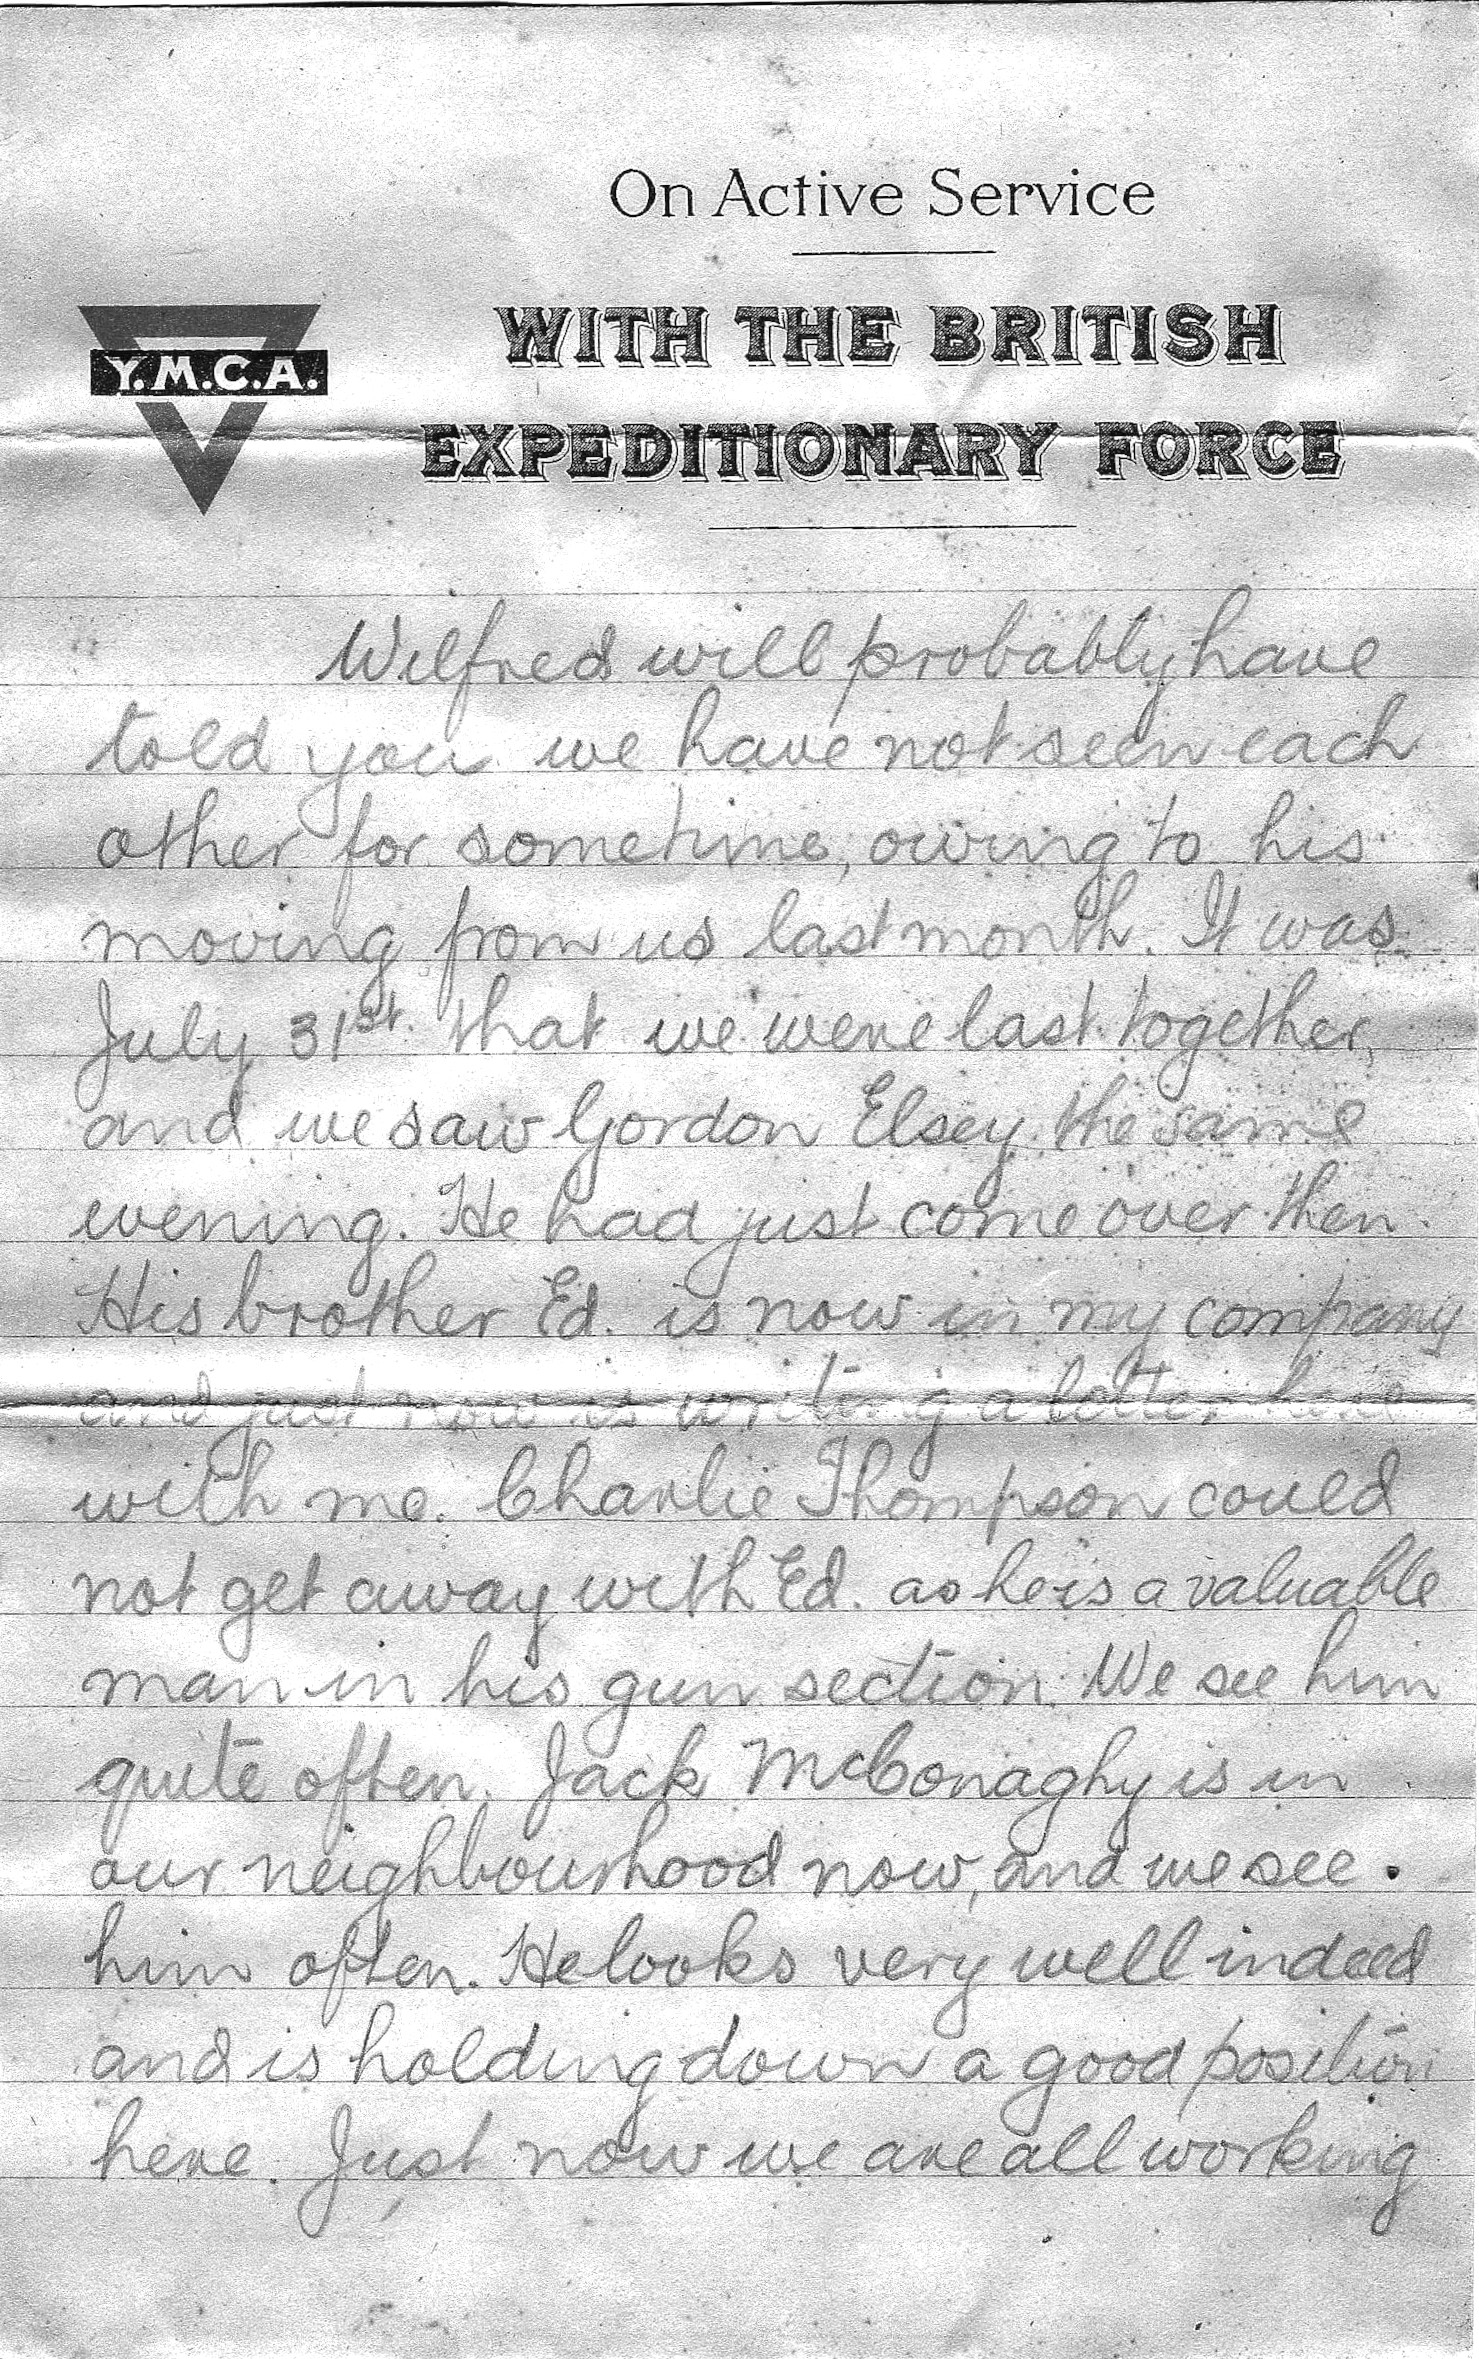 On Active Service
WITH THE BRITISH
Y.M.C.A.
EXPEDITIONARY FORCE
Wilfred will probably have
told you we have not seen each
other for sometime, owing to his
moving from us last month. It was
July 31st. that we were last together,
and we saw Gordon Elsey the same
evening. He had just come over then.
His brother Ed. is now in my company
and just now is writing a letter here
with me. Charlie Thompson could
not get away with Ed. as he is a valuable
man in his gun section. We see him
quite often. Jack McConaghy is in
our neighbourhood now, and we see
him often. He looks very well indeed
and is holding down a good position
here. Just now we are all working